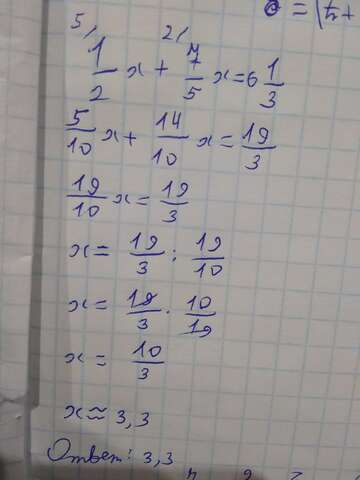 5, 2,
1/2 x + 7/5 x = 6 1/3
5/10 x + 14/10 x = 19/3
19/10 x = 19/3
x = 19/3 : 19/10
x = 19/3 · 10/19
x = 10/3
x ≈ 3,3
Ответ: 3,3